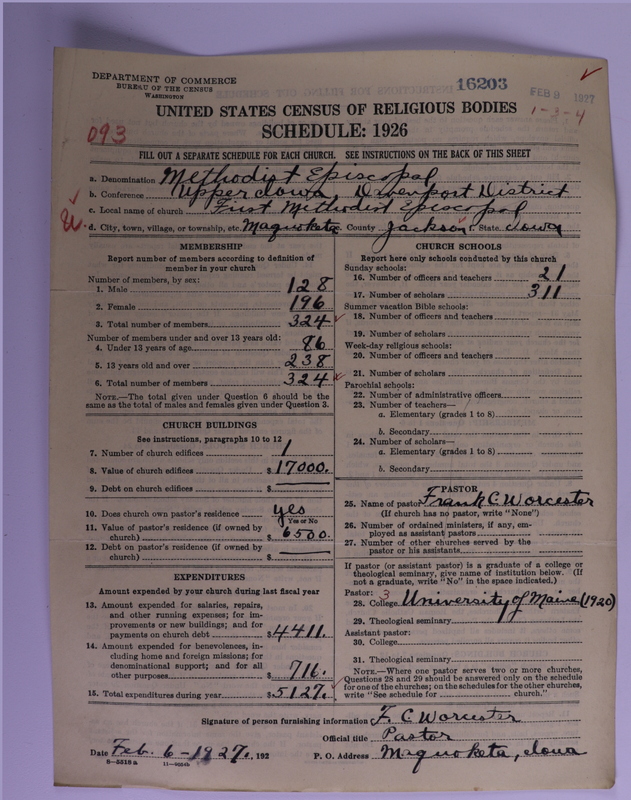 DEPARTMENT OF COMMERCE
BUREAU OF THE CENSUS
WASHINGTON
16203
FEB 9 1927
1-3-4
UNITED STATES CENSUS OF RELIGIOUS BODIES
093
SCHEDULE: 1926
FILL OUT A SEPARATE SCHEDULE FOR EACH CHURCH. SEE INSTRUCTIONS ON THE BACK OF THIS SHEET
a. Denomination Methodist Episcopal
b. Conference Upper Iowa, Davenport District
c. Local name of church First Methodist Episcopal
d. City, town, village, or township, etc. Maquoketa e. County Jackson f. State Iowa
MEMBERSHIP
Report number of members according to definition of
member in your church
Number of members, by sex:
1. Male 128
2. Female 196
3. Total number of members 324
Number of members under and over 13 years old:
4. Under 13 years of age 86
5. 13 years old and over 238
6. Total number of members 324
NOTE.—The total given under Question 6 should be the
same as the total of males and females given under Question 3.
CHURCH BUILDINGS
See instructions, paragraphs 10 to 12
7. Number of church edifices 1
8. Value of church edifices $17000.
9. Debt on church edifices $
10. Does church own pastor's residence yes
Yes or No
11. Value of pastor's residence (if owned by
church) $6500.
12. Debt on pastor's residence (if owned by
church) $
EXPENDITURES
Amount expended by your church during last fiscal year
13. Amount expended for salaries, repairs,
and other running expenses; for im-
provements or new buildings; and for
payments on church debt $4411.
14. Amount expended for benevolences, in-
cluding home and foreign missions; for
denominational support; and for all
other purposes $716.
15. Total expenditures during year $5127.
CHURCH SCHOOLS
Report here only schools conducted by this church
Sunday schools:
16. Number of officers and teachers 21
17. Number of scholars 311
Summer vacation Bible schools:
18. Number of officers and teachers
19. Number of scholars
Week-day religious schools:
20. Number of officers and teachers
21. Number of scholars
Parochial schools:
22. Number of administrative officers
23. Number of teachers—
a. Elementary (grades 1 to 8)
b. Secondary
24. Number of scholars—
a. Elementary (grades 1 to 8)
b. Secondary
PASTOR
25. Name of pastor Frank C. Worcester
(If church has no pastor, write "None")
26. Number of ordained ministers, if any, em-
ployed as assistant pastors
27. Number of other churches served by the
pastor or his assistants
If pastor (or assistant pastor) is a graduate of a college or
theological seminary, give name of institution below. (If
not a graduate, write "No" in the space indicated.)
Pastor: 3
28. College University of Maine (1920)
29. Theological seminary
Assistant pastor:
30. College
31. Theological seminary
NOTE.—Where one pastor serves two or more churches,
Questions 28 and 29 should be answered only on the schedule
for one of the churches; on the schedules for the other churches,
write "See schedule for church."
Signature of person furnishing information F. C. Worcester
Official title Pastor
Date Feb. 6-1927., 192 P. O. Address Maquoketa, Iowa
8—5518a 11—9554b